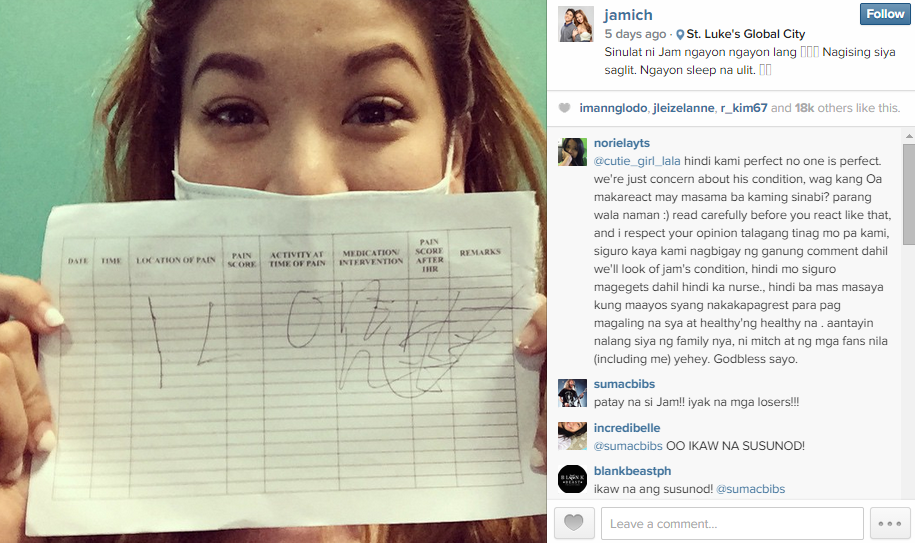 jamich
Follow
5 days ago · St. Luke's Global City
Sinulat ni Jam ngayon ngayon lang Nagising siya
saglit. Ngayon sleep na ulit.
imannglodo, jleizelanne, r_kim67 and 18k others like this.
norielayts
@cutie_girl_lala hindi kami perfect no one is perfect.
we're just concern about his condition, wag kang Oa
makareact may masama ba kaming sinabi? parang
wala naman :) read carefully before you react like that,
and i respect your opinion talagang tinag mo pa kami,
siguro kaya kami nagbigay ng ganung comment dahil
we'll look of jam's condition, hindi mo siguro
magegets dahil hindi ka nurse., hindi ba mas masaya
kung maayos syang nakakapagrest para pag
magaling na sya at healthy'ng healthy na . aantayin
nalang siya ng family nya, ni mitch at ng mga fans nila
(including me) yehey. Godbless sayo.
sumacbibs
patay na si Jam!! iyak na mga losers!!!
incredibelle
@sumacbibs OO IKAW NA SUSUNOD!
blankbeastph
ikaw na ang susunod! @sumacbibs
Leave a comment...
DATE TIME LOCATION OF PAIN PAIN SCORE ACTIVITY AT TIME OF PAIN MEDICATION/ INTERVENTION PAIN SCORE AFTER 1HR REMARKS